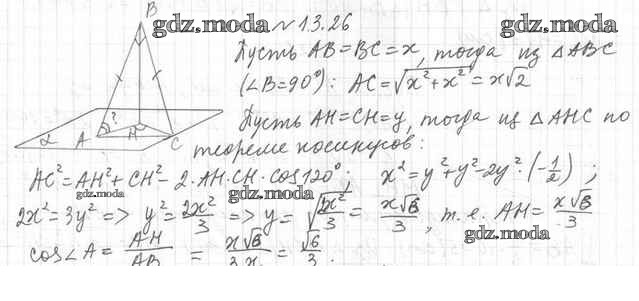 B
gdz.moda № 13.26 gdz.moda
Пусть AB=BC=x, тогда из △ABC
(∠B=90°): AC=√x²+x² = x√2
Пусть AH=CH=y, тогда из △AHC по
теореме косинусов:
?
α A H C
AC²=AH²+CH²-2·AH·CH·cos120°; x²=y²+y²-2y²·(-1/2);
gdz.moda gdz.moda
2x²=3y² => y²=2x²/3 => y=√2x²/3 = x√6/3, т.е. AH=x√6/3
gdz.moda
cos∠A = AH/AB = x√6/3·x = √6/3.